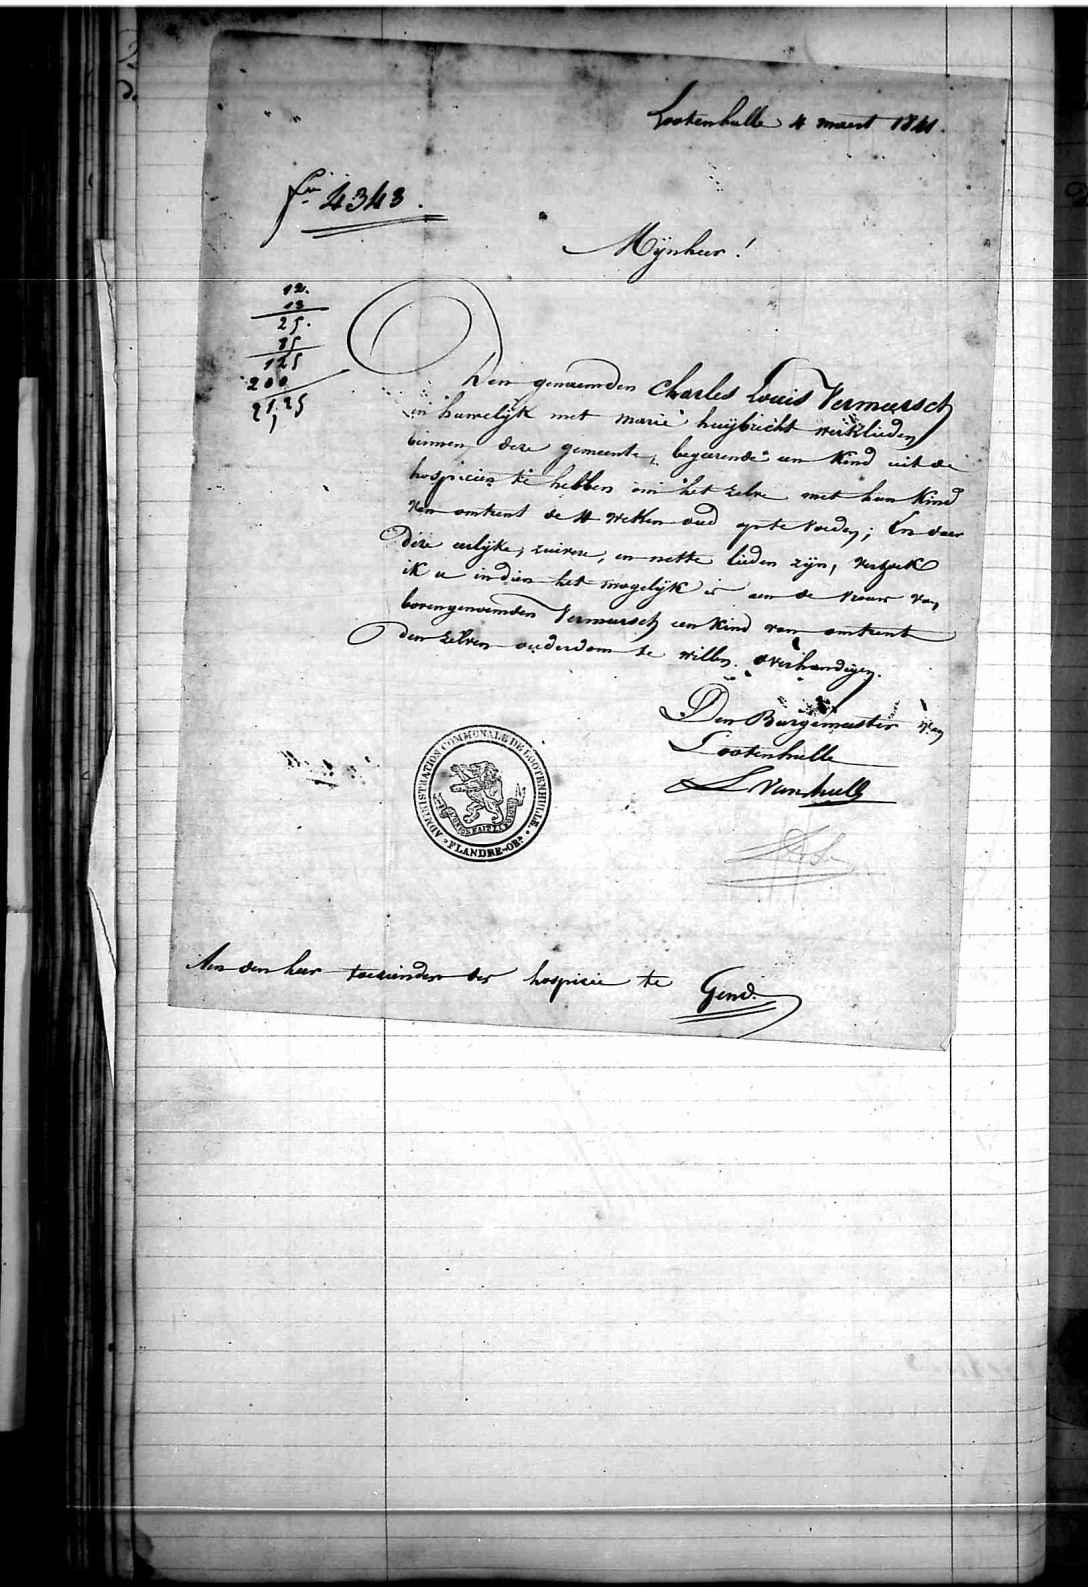 Lootenhulle 4 maert 1841.
fo 4343.
Mijnheer!
12.
13
25.
85
125
200
21,25
Den genaemden Charles Louis Vermeersch
in huwelijk met Marie huijbrecht werklieden
binnen deze gemeente, begeerende een Kind uit de
hospicien te hebben om het zelve met hun Kind
van omtrent de 4 weken oud op te voeden; En daer
deze eerlijke, zuivere, en nette lieden zijn, verzoek
ik u indien het mogelijk is aen de vrouw van
bovengenoemden Vermeersch een Kind van omtrent
den zelven ouderdom te willen overhandigen.
Den Burgemeester van
Lootenhulle
L Vanhulle
ADMINISTRATION COMMUNALE DE LOOTENHULLE
L'UNION FAIT LA FORCE
FLANDRE-ORle
Aen den heer toeziender der hospicie te Gend.